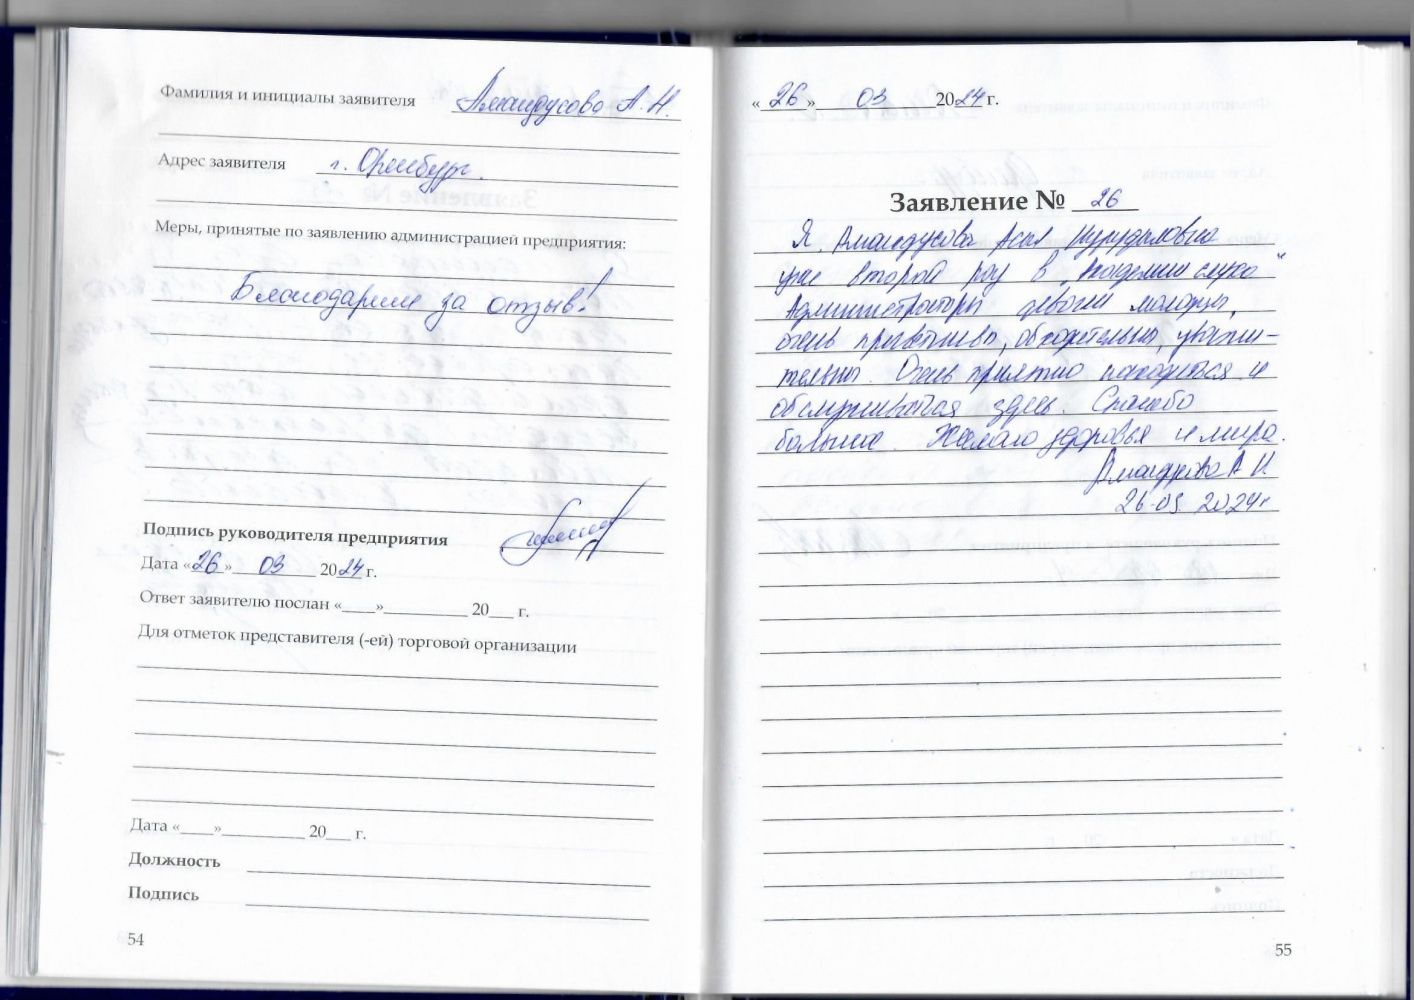 Фамилия и инициалы заявителя Амандусова А. Н.
Адрес заявителя г. Оренбург.
Меры, принятые по заявлению администрацией предприятия:
Благодарим за отзыв!
Подпись руководителя предприятия
Дата «26» 03 2024 г.
Ответ заявителю послан «____»__________ 20___ г.
Для отметок представителя (-ей) торговой организации
Дата «____»__________ 20___ г.
Должность
Подпись
54
«26» 03 2024 г.
Заявление № 26
Я, Амандусова
уже второй раз в „Академии слуха“
Администраторы девочки молодцы,
очень приветливы, обходительны, уважи-
тельны. Очень приятно находиться и
обслуживаться здесь. Спасибо
большое. Желаю здоровья и мира.
Амандусова А Н
26.03 2024г
55